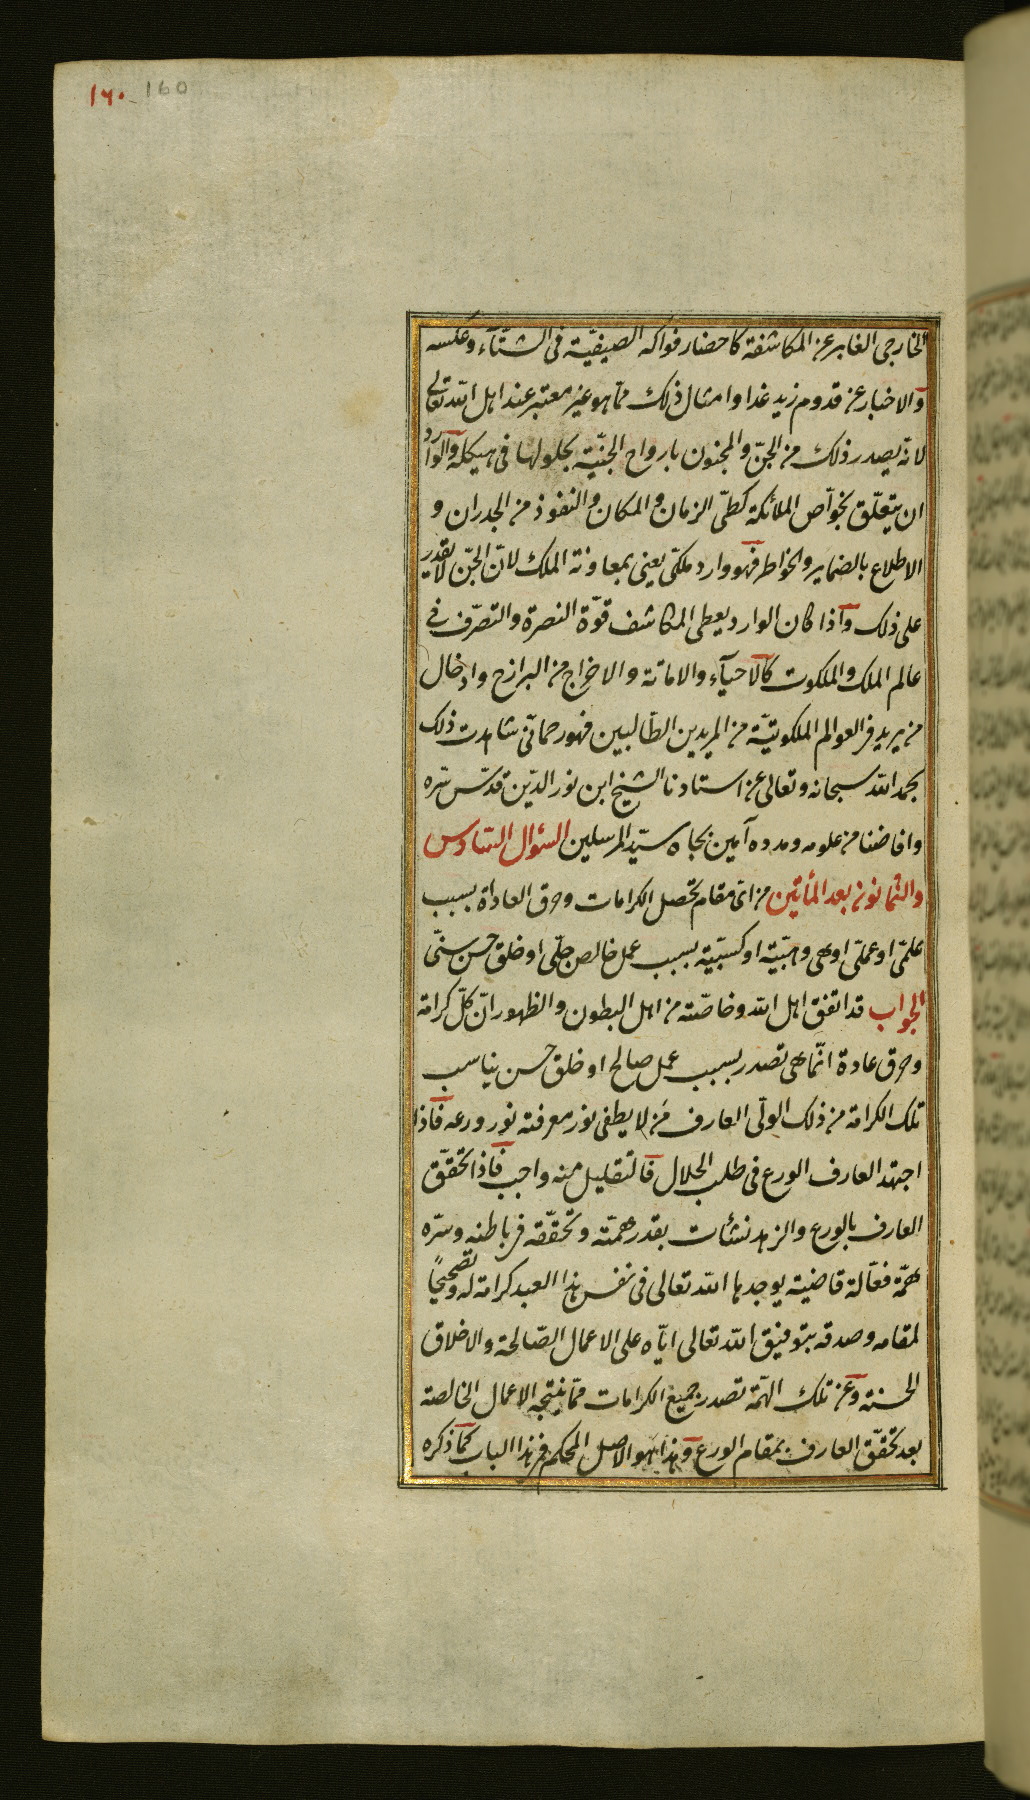 ١٦٠ 160
الخارجى الغابر عن المكاشفة كاحضار فواكه الصيفيّة فى الشتآء وعكسه
والاخبار عن قدوم زيد غدا وامثال ذلك ممّا هو غير معتبر عند اهل الله تعالى
لانّه يصدر ذلك من الجنّ والمجنون بارواح الجنّية بحلولها فى هيكله والوارد
ان يتعلّق بخواّص الملائكة كطىّ الزمان والمكان والنفوذ من الجدران و
الاطلاع بالضماير والخواطر فهو وارد ملكى يعنى بمعاونة الملك لانّ الجنّ لا يقدر
على ذلك واذا كان الوارد يعطى المكاشف قوّة النصرة والتصرّف فى
عالم الملك والملكوت كالاحيآء والاماتة والاخراج من البرازح وادخال
من يريد فى العوالم الملكوتيّة من المريدين الطّالبين فهو رحمانّى شاهدت ذلك
بحمد الله سبحانه وتعالى عن استادنا الشيخ ابن نور الدّين قدّس سّره
وافاضنا من علومه ومدده آمين بجاه سيّد المرسلين السئوال السّادس
والثمانون بعد المأتين من اىّ مقام تحصل الكرامات وخرق العاداة بسبب
علمّى او عملّى او هى وهبيّة او كسبيّة بسبب عمل خالص جلّى او خلق حسن سنىّ
الجواب قد اتفق اهل الله وخاصّته من اهل البطون والظهور انّ كلّ كرامة
وخرق عادة انّما هى تصدر بسبب عمل صالح او خلق حسن يناسب
تلك الكرامة من ذلك الولّى العارف مَن لا يطفى نور معرفته نور ورعه فاذا
اجتهد العارف الورع فى طلب الحلال فالتقليل منه واجب فاذا تحقّق
العارف بالورع والزهد نشأت بقدر همّته وتحقّقه فى باطنه وسّره
همّة فعّالة قاضية يوجدها الله تعالى فى نفس هذا العبد كرامة له وتصحيحًا
لمقامه وصدقه بتوفيق الله تعالى ايّاه على الاعمال الصّالحة والاخلاق
الحسنة وعن تلك الهمّة تصدر جميع الكرامات ممّا ينتجه الاعمال الخالصة
بعد تحقّق العارف بمقام الورع وهذا هو الاصل المحكم فى هذا الباب كما ذكره